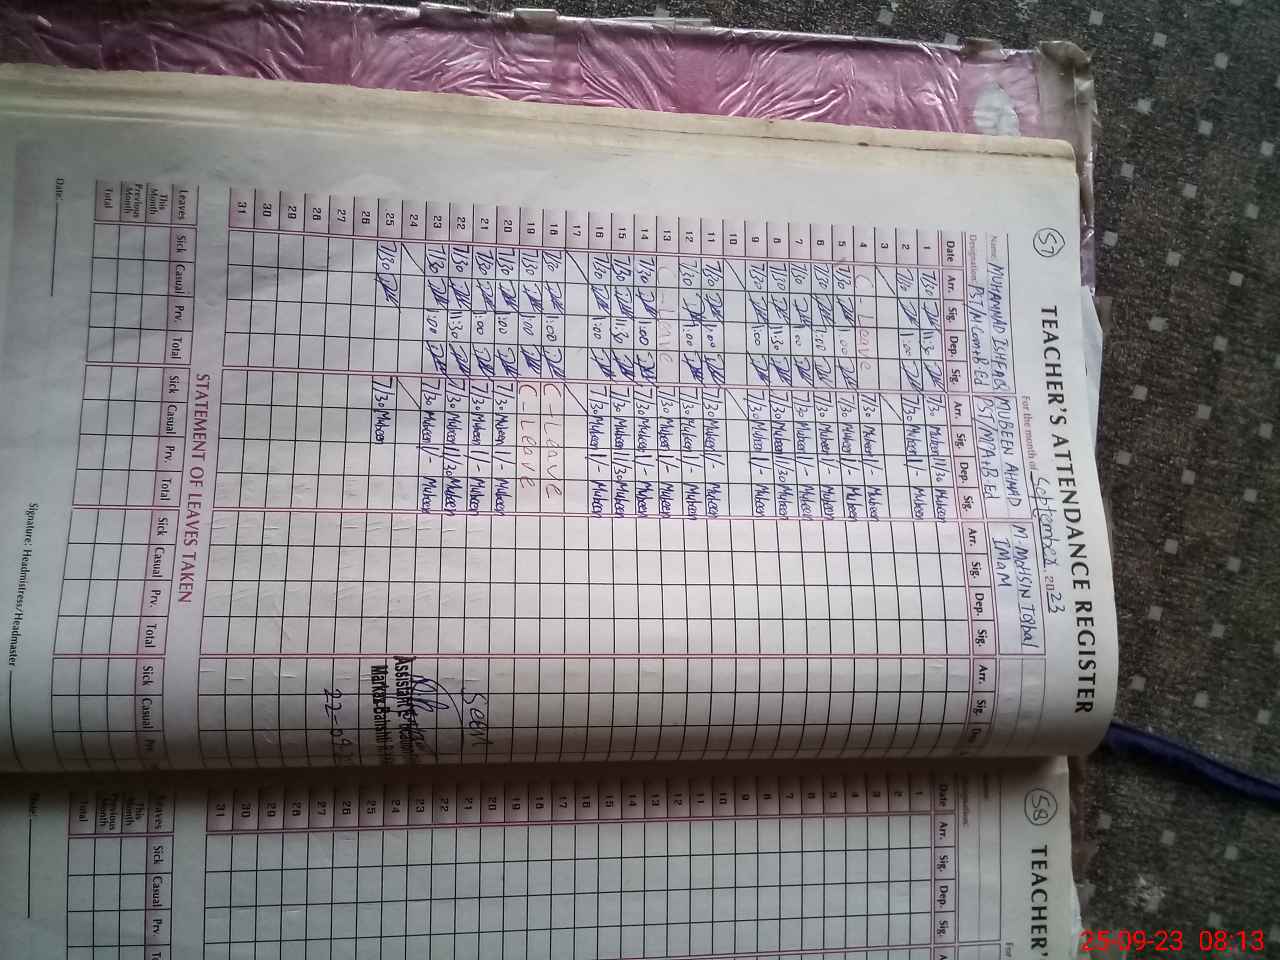 57
TEACHER'S ATTENDANCE REGISTER
For the month of September 2023
Name: MUHAMMAD ISHFAQ MUBEEN AHMAD M. MOHSIN Iqbal
Designation: PST/M.Com+B.Ed PST/M.A+B.Ed IMaM
Date Arr. Sig. Dep. Sig. Arr. Sig. Dep. Sig. Arr. Sig. Dep. Sig. Arr. Sig. Dep.
1 7/30 11:30 7/30 Mubeen 11/30 Mubeen
2 7/30 1:00 7/30 Mubeen 1/- Mubeen
3
4 C - Leave 7/30 Mubeen 1/- Mubeen
5 7/30 1:00 7/30 Mubeen 1/- Mubeen
6 7/30 1:00 7/30 Mubeen 1/- Mubeen
7 7/30 1:00 7/30 Mubeen 1/- Mubeen
8 7/30 11:30 7/30 Mubeen 11/30 Mubeen
9 7/30 1:00 7/30 Mubeen 1/- Mubeen
10
11 7/30 1:00 7/30 Mubeen 1/- Mubeen
12 7/30 1:00 7/30 Mubeen 1/- Mubeen
13 C - Leave 7/30 Mubeen 1/- Mubeen
14 7/30 1:00 7/30 Mubeen 1/- Mubeen
15 7/30 11:30 7/30 Mubeen 11/30 Mubeen
16 7/30 1:00 7/30 Mubeen 1/- Mubeen
17
18 7/30 1:00 C - Leave
19 7/30 1:00 C - Leave
20 7/30 1:00 7/30 Mubeen 1/- Mubeen
21 7/30 1:00 7/30 Mubeen 1/- Mubeen Seen
22 7/30 11:30 7/30 Mubeen 11/30 Mubeen
23 7/30 1:00 7/30 Mubeen 1/- Mubeen
24 Assistant
25 7/30 7/30 Mubeen Markaz
26
27 22-09
28
29
30
31
STATEMENT OF LEAVES TAKEN
Leaves Sick Casual Prv. Total Sick Casual Prv. Total Sick Casual Prv. Total Sick Casual Prv.
This Month
Previous Month
Total
Date: Signature: Headmistress/Headmaster
58
TEACHER'
For
Date Arr. Sig. Dep. Sig. A
1
2
3
4
5
6
7
8
9
10
11
12
13
14
15
16
17
18
19
20
21
22
23
24
25
26
27
28
29
30
31
Leaves Sick Casual Prv.
This Month
Previous Month
Total
25-09-23 08:13